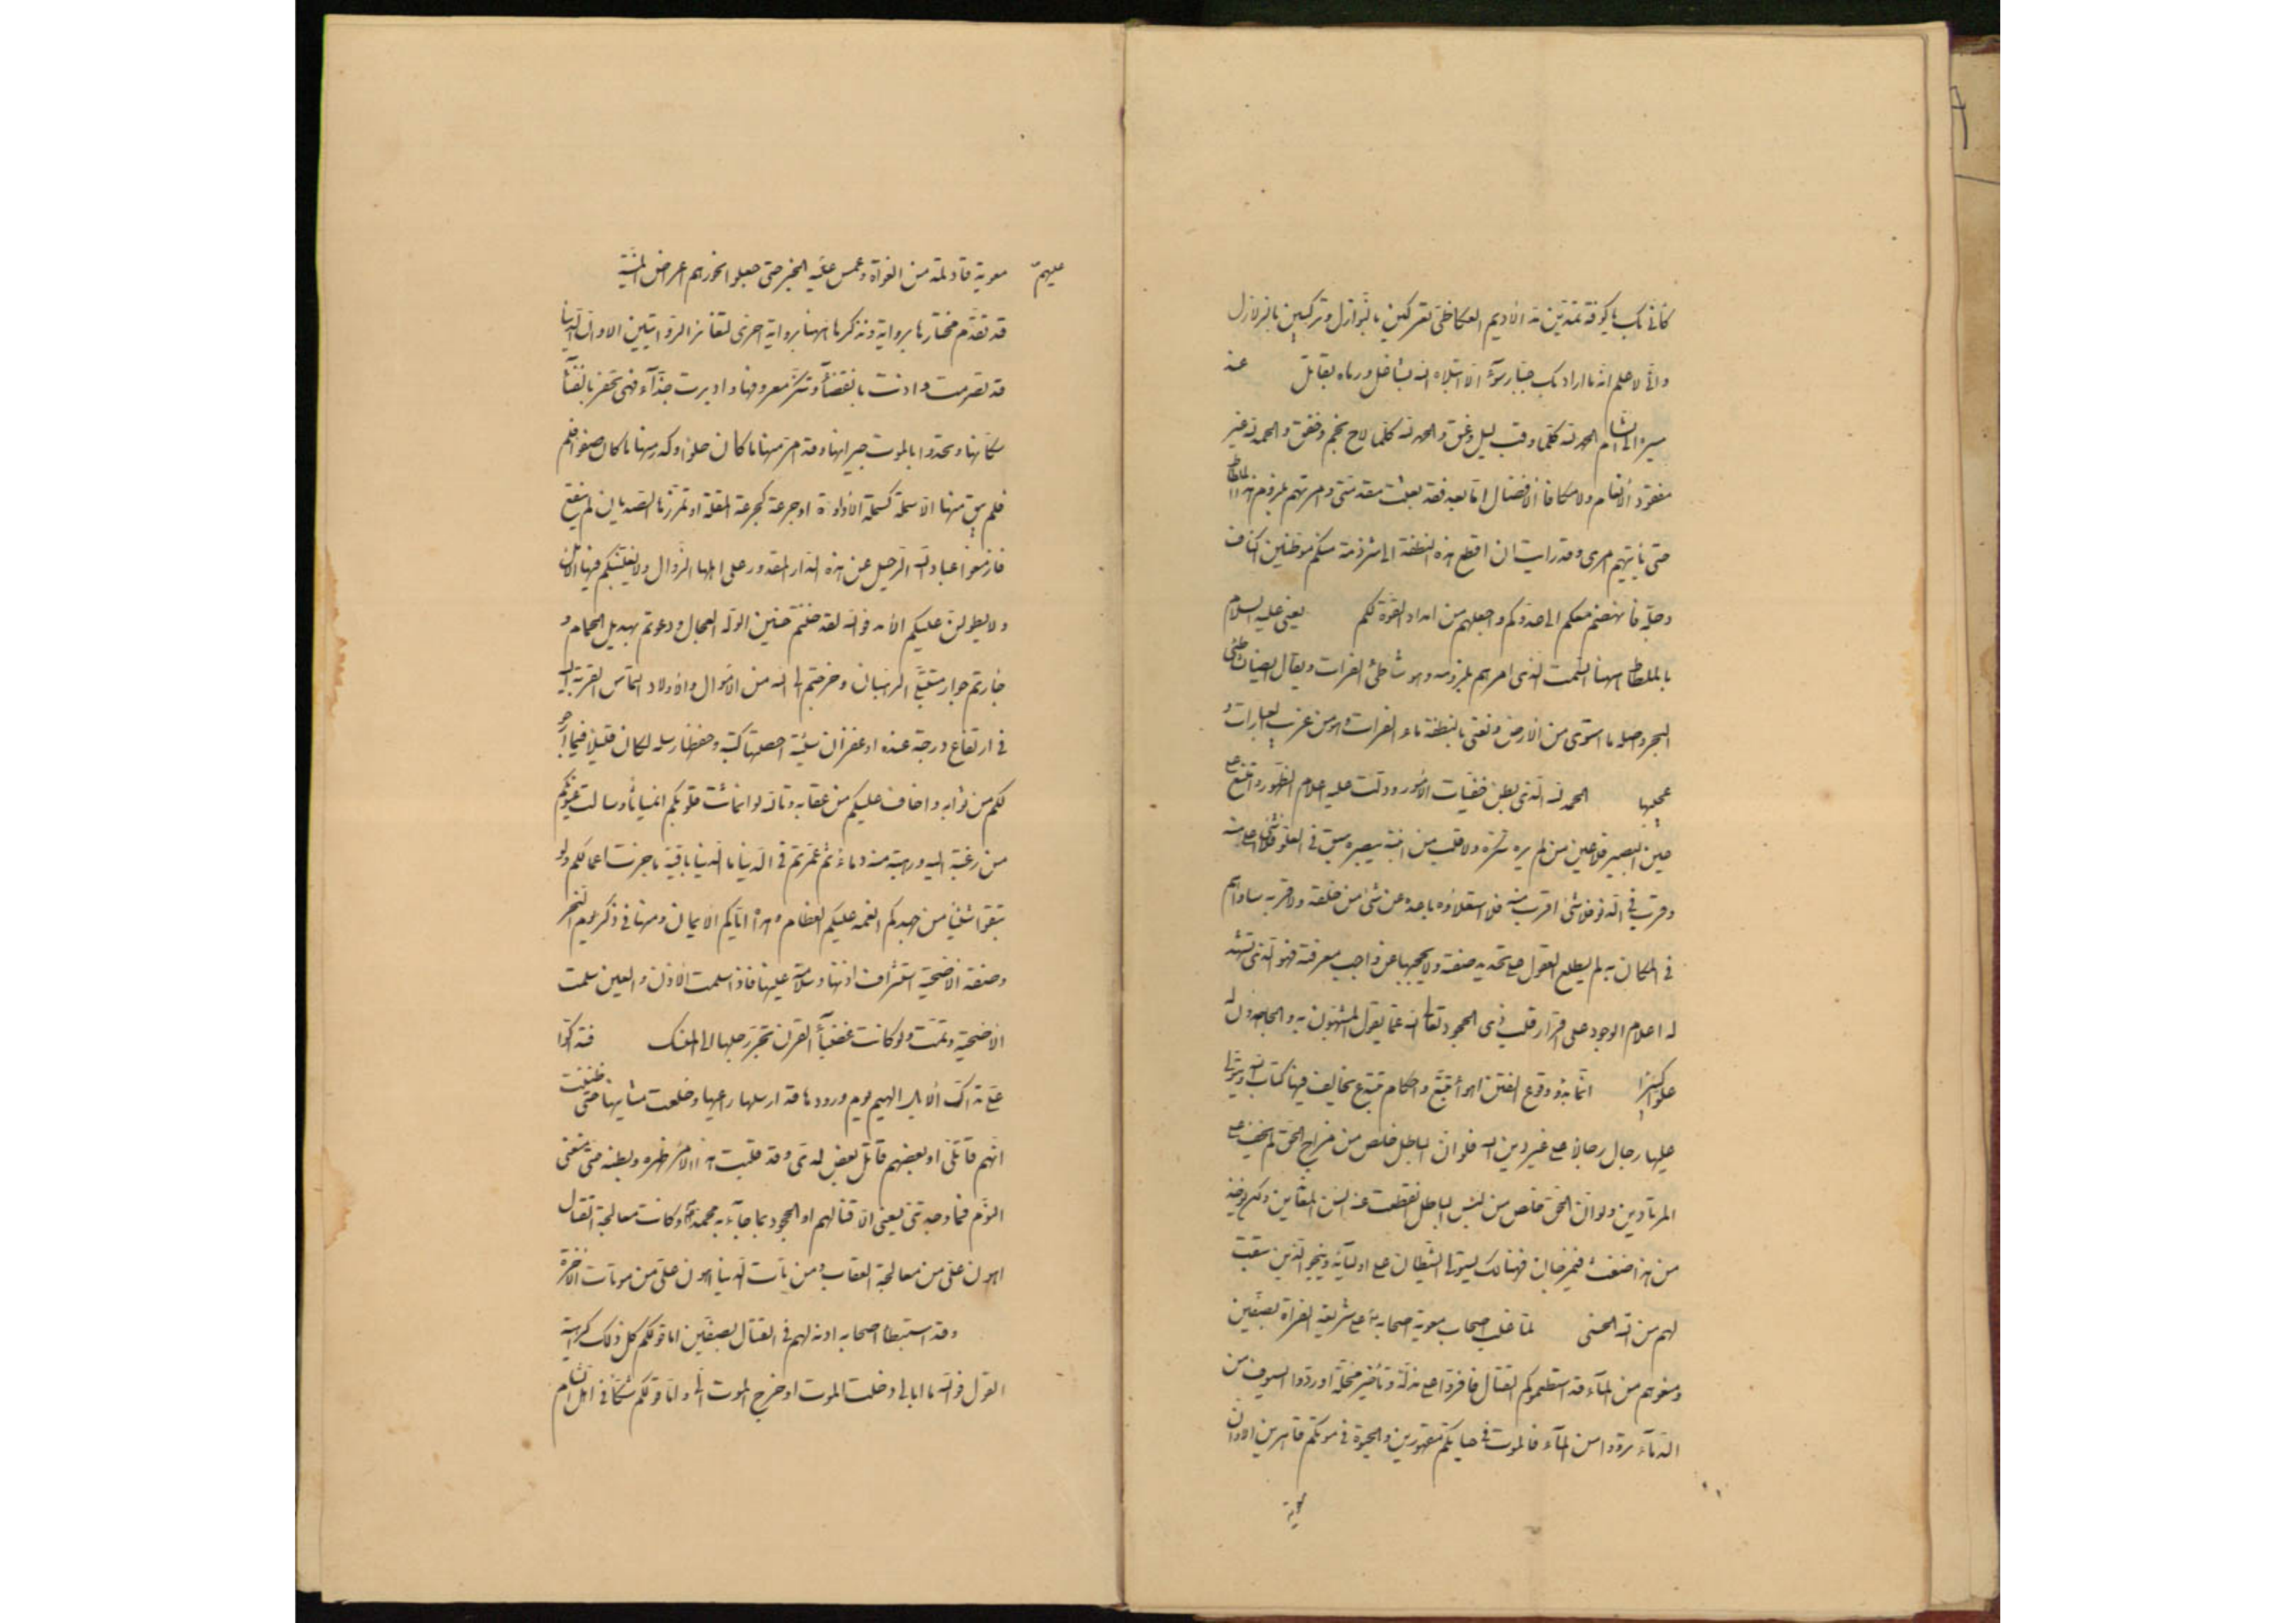 كأنى بك يا كوفة تمدين مد الأديم العكاظى تعركين بالنوازل وتركبين بالزلازل
وانى لاعلم انه ما اراد بك جبار سوءً الا ابتلاه الله بشاغل ورماه بقاتل عند
مسيره الى الشام الحمد لله كلما وقب ليل وغسق والحمد لله كلما لاح نجم وخفق والحمد لله غير
مفقود الأنعام ولا مكافا الأفضال اما بعد فقد بعثت مقدمتى وامرتهم بلزوم هذا الملطاط
حتى ياتيهم امرى وقد رايت ان اقطع هذه النطفة الى شرذمة منكم موطنين اكناف
دجلة فأنهضهم معكم الى عدوكم واجعلهم من امداد القوة لكم يعنى عليه السلام
بالملطاط ههنا السمت الذى امرهم بلزومه وهو شاطئ الفرات ويقال ايضا لشاطئ
البحر واصله ما استوى من الارض ويعنى بالنطفة ماء الفرات وهو من غريب العبارات و
عجيبها الحمد لله الذى بطن خفيات الأمور ودلت عليه اعلام الظهور وامتنع على
عين البصير فلا عين من لم يره تنكره ولا قلب من اثبته يبصره سبق فى العلو فلا شئ اعلى منه
وقرب فى الدنو فلا شئ اقرب منه فلا استعلاؤه باعده عن شئ من خلقه ولا قربه ساواهم
فى المكان به لم يطلع العقول على تحديد صفته ولا يحجبها عن واجب معرفته فهو الذى تشهد
له اعلام الوجود على اقرار قلب ذى الجحود تعالى الله عما يقول المشبهون به والجاحدون له
علوا كبيرا انما بدو وقوع الفتن اهواء تتبع واحكام تبتدع يخالف فيها كتاب الله ويتولى
عليها رجال رجالا على غير دين الله فلو ان الباطل خلص من مزاج الحق لم يخف على
المرتادين ولو ان الحق خلص من لبس الباطل انقطعت عنه السن المعاندين ولكن يوخذ
من هذا ضغث فيمزجان فهنالك يستولى الشيطان على اوليآئه وينجو الذين سبقت
لهم من الله الحسنى لما غلب اصحاب معوية اصحابه ع على شريعة الفراة بصفين
ومنعوهم من المآء قد استطعموكم القتال فاقروا على مذلة وتأخير محلة او رووا السيوف من
الدمآء ترووا من المآء فالموت فى حياتكم مقهورين والحيوة فى موتكم قاهرين الا وان
معوية
عليهم
معوية قاد لمة من الغواة وعمس عليه الخبر حتى جعلوا نحورهم اغراض المنية
قد تقدم مختارها برواية ونذكرها ههنا برواية اخرى لتغاير الروايتين الا وان الدنيا
قد تصرمت واذنت بانقضآء وتنكر معروفها وادبرت حذآء فهى تحفز بالفنآء
سكانها وتحدوا بالموت جيرانها وقد امر منها ما كان حلوا وكدر منها ما كان صفوا فلم
فلم يبق منها الا سملة كسملة الأداوة او جرعة كجرعة المقلة لو تمززها الصديان لم ينقع
فازمعوا عباد الله الرحيل عن هذه الدار المقدور على اهلها الزوال ولا يغلبنكم فيها الأمل
ولا يطولن عليكم الأمد فوالله لقد حننتم حنين الوله العجال ودعوتم بهديل الحمام و
جأرتم جوار متبتل الرهبان وخرجتم الى الله من الأموال والأولاد التماس القربة اليه
فى ارتفاع درجة عنده او غفران سيئة احصتها كتبه وحفظها رسله لكان قليلا فيما ارجو
لكم من ثوابه واخاف عليكم من عقابه وتالله لو انماثت قلوبكم انمياثا وسالت عيونكم
من رغبة اليه ورهبة منه دماء ثم عمرتم فى الدنيا ما الدنيا باقية ما جزت اعمالكم ولو لم
تبقوا شيئا من جهدكم انعمه عليكم العظام وهداه اياكم الايمان ومنها فى ذكر يوم النحر
وصفة الاضحية استشراف اذنها وسلامة عينها فاذا سلمت الأذن والعين سلمت
الاضحية وتمت ولو كانت عضبآء القرن تجر رجلها الى المنسك فتداكوا
على تداك الأبل الهيم يوم ورودها قد ارسلها راعيها وخلعت مثانيها حتى ظننت
انهم قاتلى او بعضهم قاتل بعض لدى وقد قلبت هذا الأمر ظهره وبطنه حتى منعنى
النوم فما وجدتنى يسعنى الا قتالهم او الجحود بما جآء به محمد ص وكانت معالجة القتال
اهون على من معالجة العقاب وموتات الدنيا اهون على من موتات الآخرة
وقد استبطا اصحابه اذنه لهم فى القتال بصفين اما قولكم اكل ذلك كراهية
الموت فوالله ما ابالى دخلت الى الموت او خرج الموت الى واما قولكم شكا فى اهل الشام